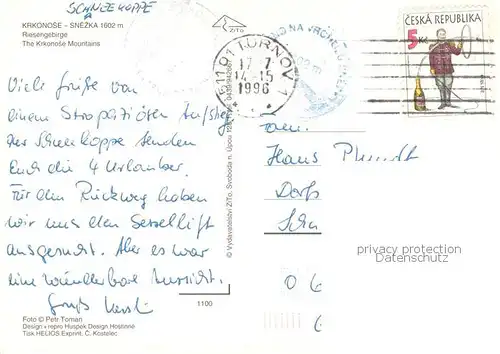 SCHNEEKOPPE
KRKONOŠE – SNĚŽKA 1602 m
Riesengebirge
The Krkonoše Mountains
ZiTo
511 01 TURNOV 1
17.7.
14-15
1996
ČESKÁ REPUBLIKA
5 Kč
Viele Grüße von
einem Aufstieg
der Schneekoppe senden
Euch die 4 Urlauber.
Für den Rückweg haben
wir uns den Sessellift
ausgesucht. Aber es war
eine wunderbare Aussicht.
Fam.
Hans
Dorfs
© Vydavatelství ZiTo, Svoboda n. Úpou
privacy protection
Datenschutz
0
1100
Foto © Petr Toman
Design + repro Huspek Design Hostinné
Tisk HELIOS Exprint, Č. Kostelec